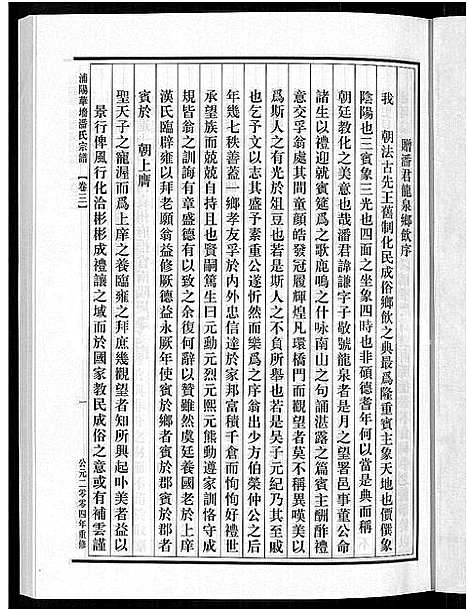 贈潘君龍泉鄉飲序
我　朝法古先王舊制化民成俗鄉飲之典最爲隆重賓主象天地也價僎象
陰陽也三賓象三光也四面之坐象四時也非碩德耆年何以當是典而稱
朝廷教化之美意也哉潘君諱謙字子敬號龍泉者是月之望署邑事董公命
生以禮迎就賓筵爲之歌鹿鳴之什咏南山之句誦湛露之篇賓主酬酢禮
意交孚翁當其間童顏皓發冠履輝煌凡環橋門而觀望者莫不稱異嘆美以
爲斯人之有光於俎豆也若是斯人之不負所舉也若是吳子元紀乃其至戚
也乞予文以志其盛予素重公遂忻然而樂爲之序翁出少方伯榮仲公之后
年幾七秩善蓋一鄉孝友孚於内外忠信達於家邦富積千倉而恂恂好禮世
承望族而兢兢自持又以詩書啓迪賢嗣篤生曰元動元烈元熙元熊動遵家訓恪守成
規皆翁之訓誨有章盛德有以致之耳余何辭以贊雖然虞廷養國老於上庠
漢氏臨辟雍以拜老願翁益修厥德益永厥年使賓於鄉者賓於郡者
賓於　朝上膺
聖天子之寵渥而爲上庠之養臨雍之拜庶幾觀望者知所興起卟美者益以
景行俾風行化洽彬彬成禮讓之域而於國家教民成俗之意或有補雲謹
浦陽華墻潘氏宗譜　【卷三】　一　公元二零零四年重修